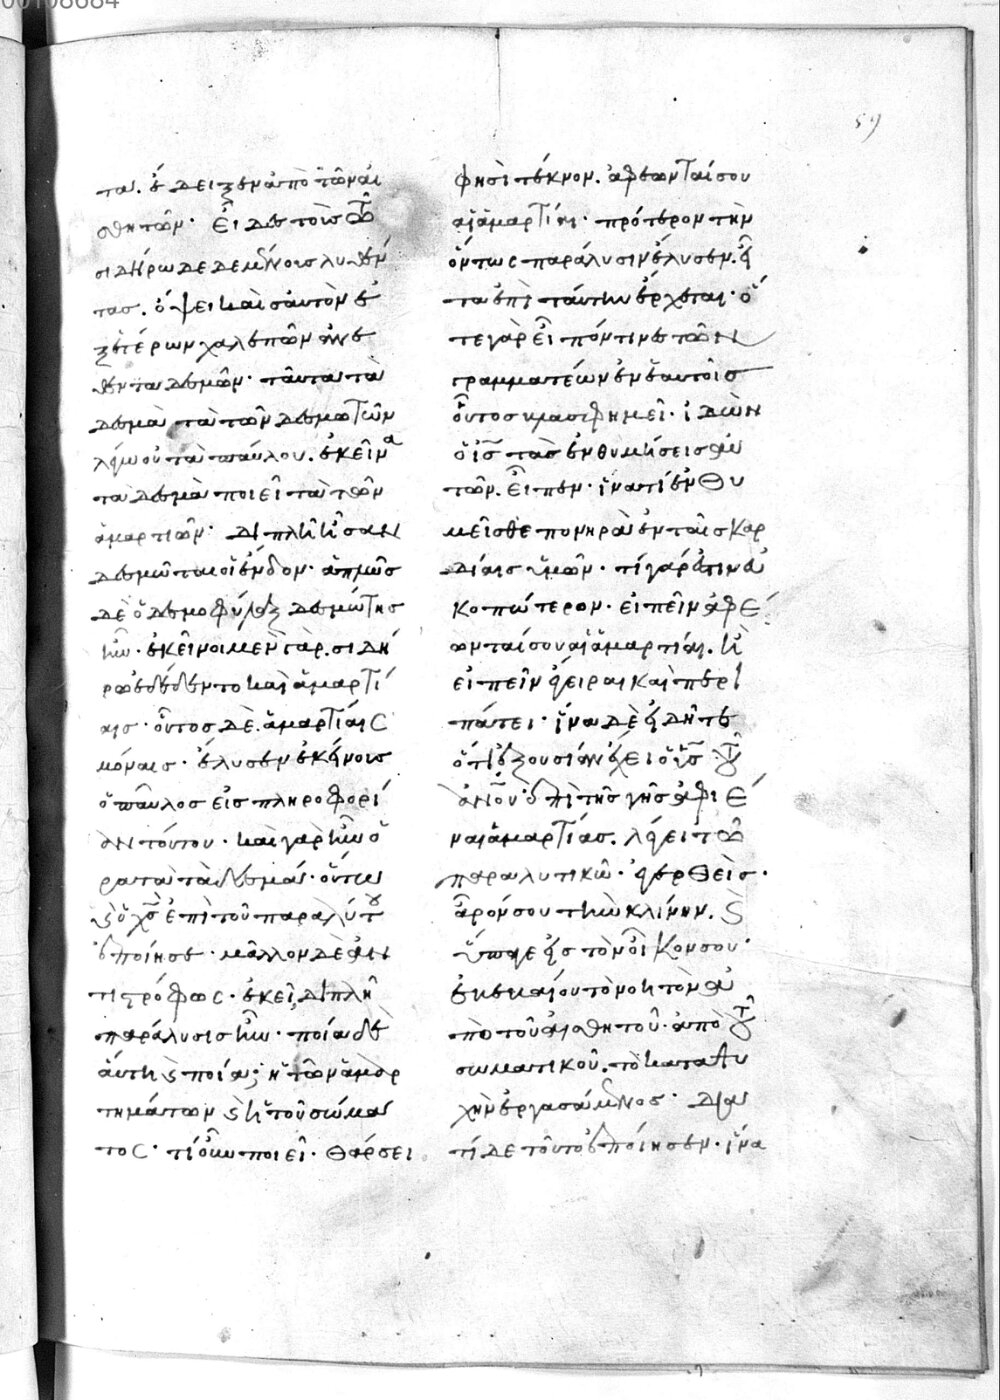 ται. ἔδειξεν ἀπὸ τῶν αἰ
σθητῶν· Εἶδες τοὺς ἐν τῷ
σιδήρῳ δεδεμένους λυθέν
τας. ὄψει καὶ σαυτὸν ἐ
ξ ἑτέρων χαλεπῶν ἀνε
θέντα δεσμῶν· ταῦτα τὰ
δεσμὰ τὰ τῶν δεσμωτῶν
λέγω οὐ τὰ παύλου. ἐκεῖνα
τὰ δεσμὰ ποιεῖ τὰ τῶν
ἁμαρτιῶν· Διπλῇ ἦσαν
δεσμῶται οἱ ἔνδον· ἁπλῶς
δὲ ὁ δεσμοφύλαξ δεσμώτης
ἦν· ἐκεῖνοι μὲν γὰρ. σιδή
ρῳ ἐδέδεντο καὶ ἁμαρτί
αις· οὗτος δὲ. ἁμαρτίαις
μόναις· ἔλυσεν ἐκείνους
ὁ παῦλος εἰς πληροφορί
αν τούτου· καὶ γὰρ ἦν ὁ
ρατὰ τὰ δεσμά· οὕτω
ς ὁ χς ἐπὶ τοῦ παραλύτου
ἐποίησε· μᾶλλον δὲ ἀν
τιστρόφως· ἐκεῖ, διπλῆ
παράλυσις ἦν· ποία δὲ
αὕτη ς ποία; ἡ τῶν ἁμαρ
τημάτων ς ἡ τοῦ σώμα
τος· τί οὖν ποιεῖ· Θάρσει
φησὶ τέκνον. ἀφέωνταί σου
αἱ ἁμαρτίαι· πρότερον τὴν
ὄντως παράλυσιν ἔλυσεν. εἶ
τα ἐπὶ ταύτην ἔρχεται· ὅ
τε γὰρ εἶπόν τινες τῶν
γραμματέων ἐν ἑαυτοῖς
οὗτος βλασφημεῖ· ἰδὼν
ὁ ις τὰς ἐνθυμήσεις αὐ
τῶν. εἶπεν· ἱνατί ἐνθυ
μεῖσθε πονηρὰ ἐν ταῖς καρ
δίαις ὑμῶν· τί γάρ ἐστιν εὐ
κοπώτερον· εἰπεῖν ἀφέ
ωνταί σου αἱ ἁμαρτίαι. ἢ
εἰπεῖν ἔγειραι καὶ περι
πάτει· ἵνα δὲ εἰδῆτε
ὅτι ἐξουσίαν ἔχει ὁ υς τοῦ
ανου ἐπὶ τῆς γῆς ἀφιέ
ναι ἁμαρτίας. λέγει τῷ
παραλυτικῷ· ἐγερθεὶς·
ἆρόν σου τὴν κλίνην. ς
ὕπαγε εἰς τὸν οἶκόν σου·
ἐκ δικαίου τὸ νοητὸν ἀ
πὸ τοῦ αἰσθητοῦ· ἀπὸ τοῦ
σωματικοῦ. τὸ κατὰ ψυ
χὴν ἐργασάμενος· Δια
τί δὲ τοῦτο ἐποίησεν· ἵνα